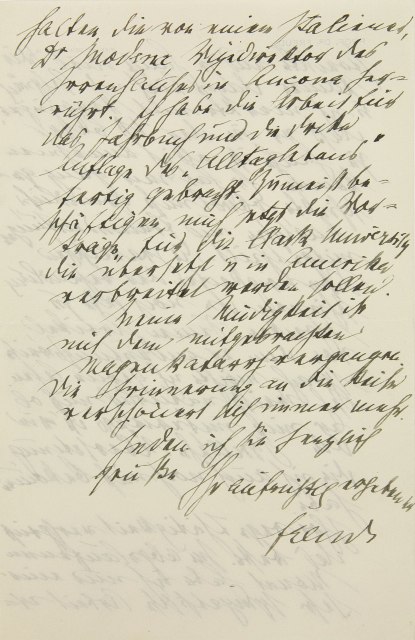 halten, die von einem Italiener,
Dr Modena, Vizedirektor des
Irrenhauses in Ancona her-
rührt. Ich habe die Arbeit für
das Jahrbuch und die dritte
Auflage des „Alltagslebens“
fertig gebracht. Zumeist be-
schäftigen mich jetzt die Vor-
träge für die Clark University
die übersetzt u in Amerika
verbreitet werden sollen.
Meine Müdigkeit ist
mit dem mitgebrachten
Magenkatarrh vergangen
Die Erinnerung an die Reise
verschönert sich immer mehr.
Indem ich Sie herzlich
grüße
Ihr aufrichtig ergebener
Freud